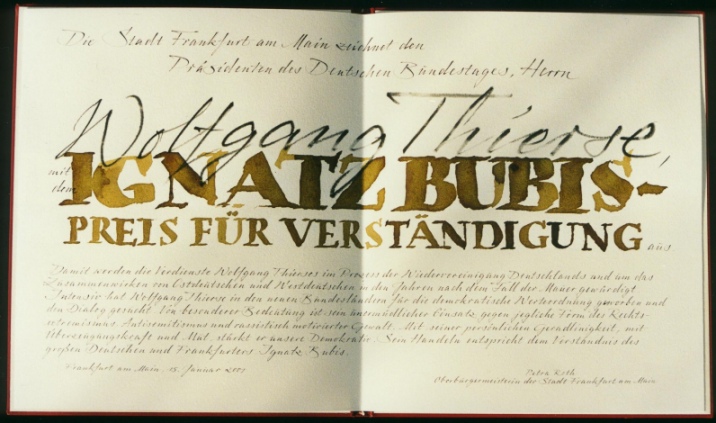 Die Stadt Frankfurt am Main zeichnet den
Präsidenten des Deutschen Bundestages, Herrn
Wolfgang Thierse,
mit dem IGNATZ BUBIS-
PREIS FÜR VERSTÄNDIGUNG aus
Damit werden die Verdienste Wolfgang Thierses im Prozess der Wiedervereinigung Deutschlands und um das
Zusammenwirken von Ostdeutschen und Westdeutschen in den Jahren nach dem Fall der Mauer gewürdigt.
Intensiv hat Wolfgang Thierse in den neuen Bundesländern für die demokratische Werteordnung geworben und
den Dialog gesucht. Von besonderer Bedeutung ist sein unermüdlicher Einsatz gegen jegliche Form des Rechts-
extremismus, Antisemitismus und rassistisch motivierter Gewalt. Mit seiner persönlichen Geradlinigkeit, mit
Überzeugungskraft und Mut, stärkt er unsere Demokratie. Sein Handeln entspricht dem Verständnis des
großen Deutschen und Frankfurters Ignatz Bubis.
Frankfurt am Main, 15. Januar 2001
Petra Roth
Oberbürgermeisterin der Stadt Frankfurt am Main